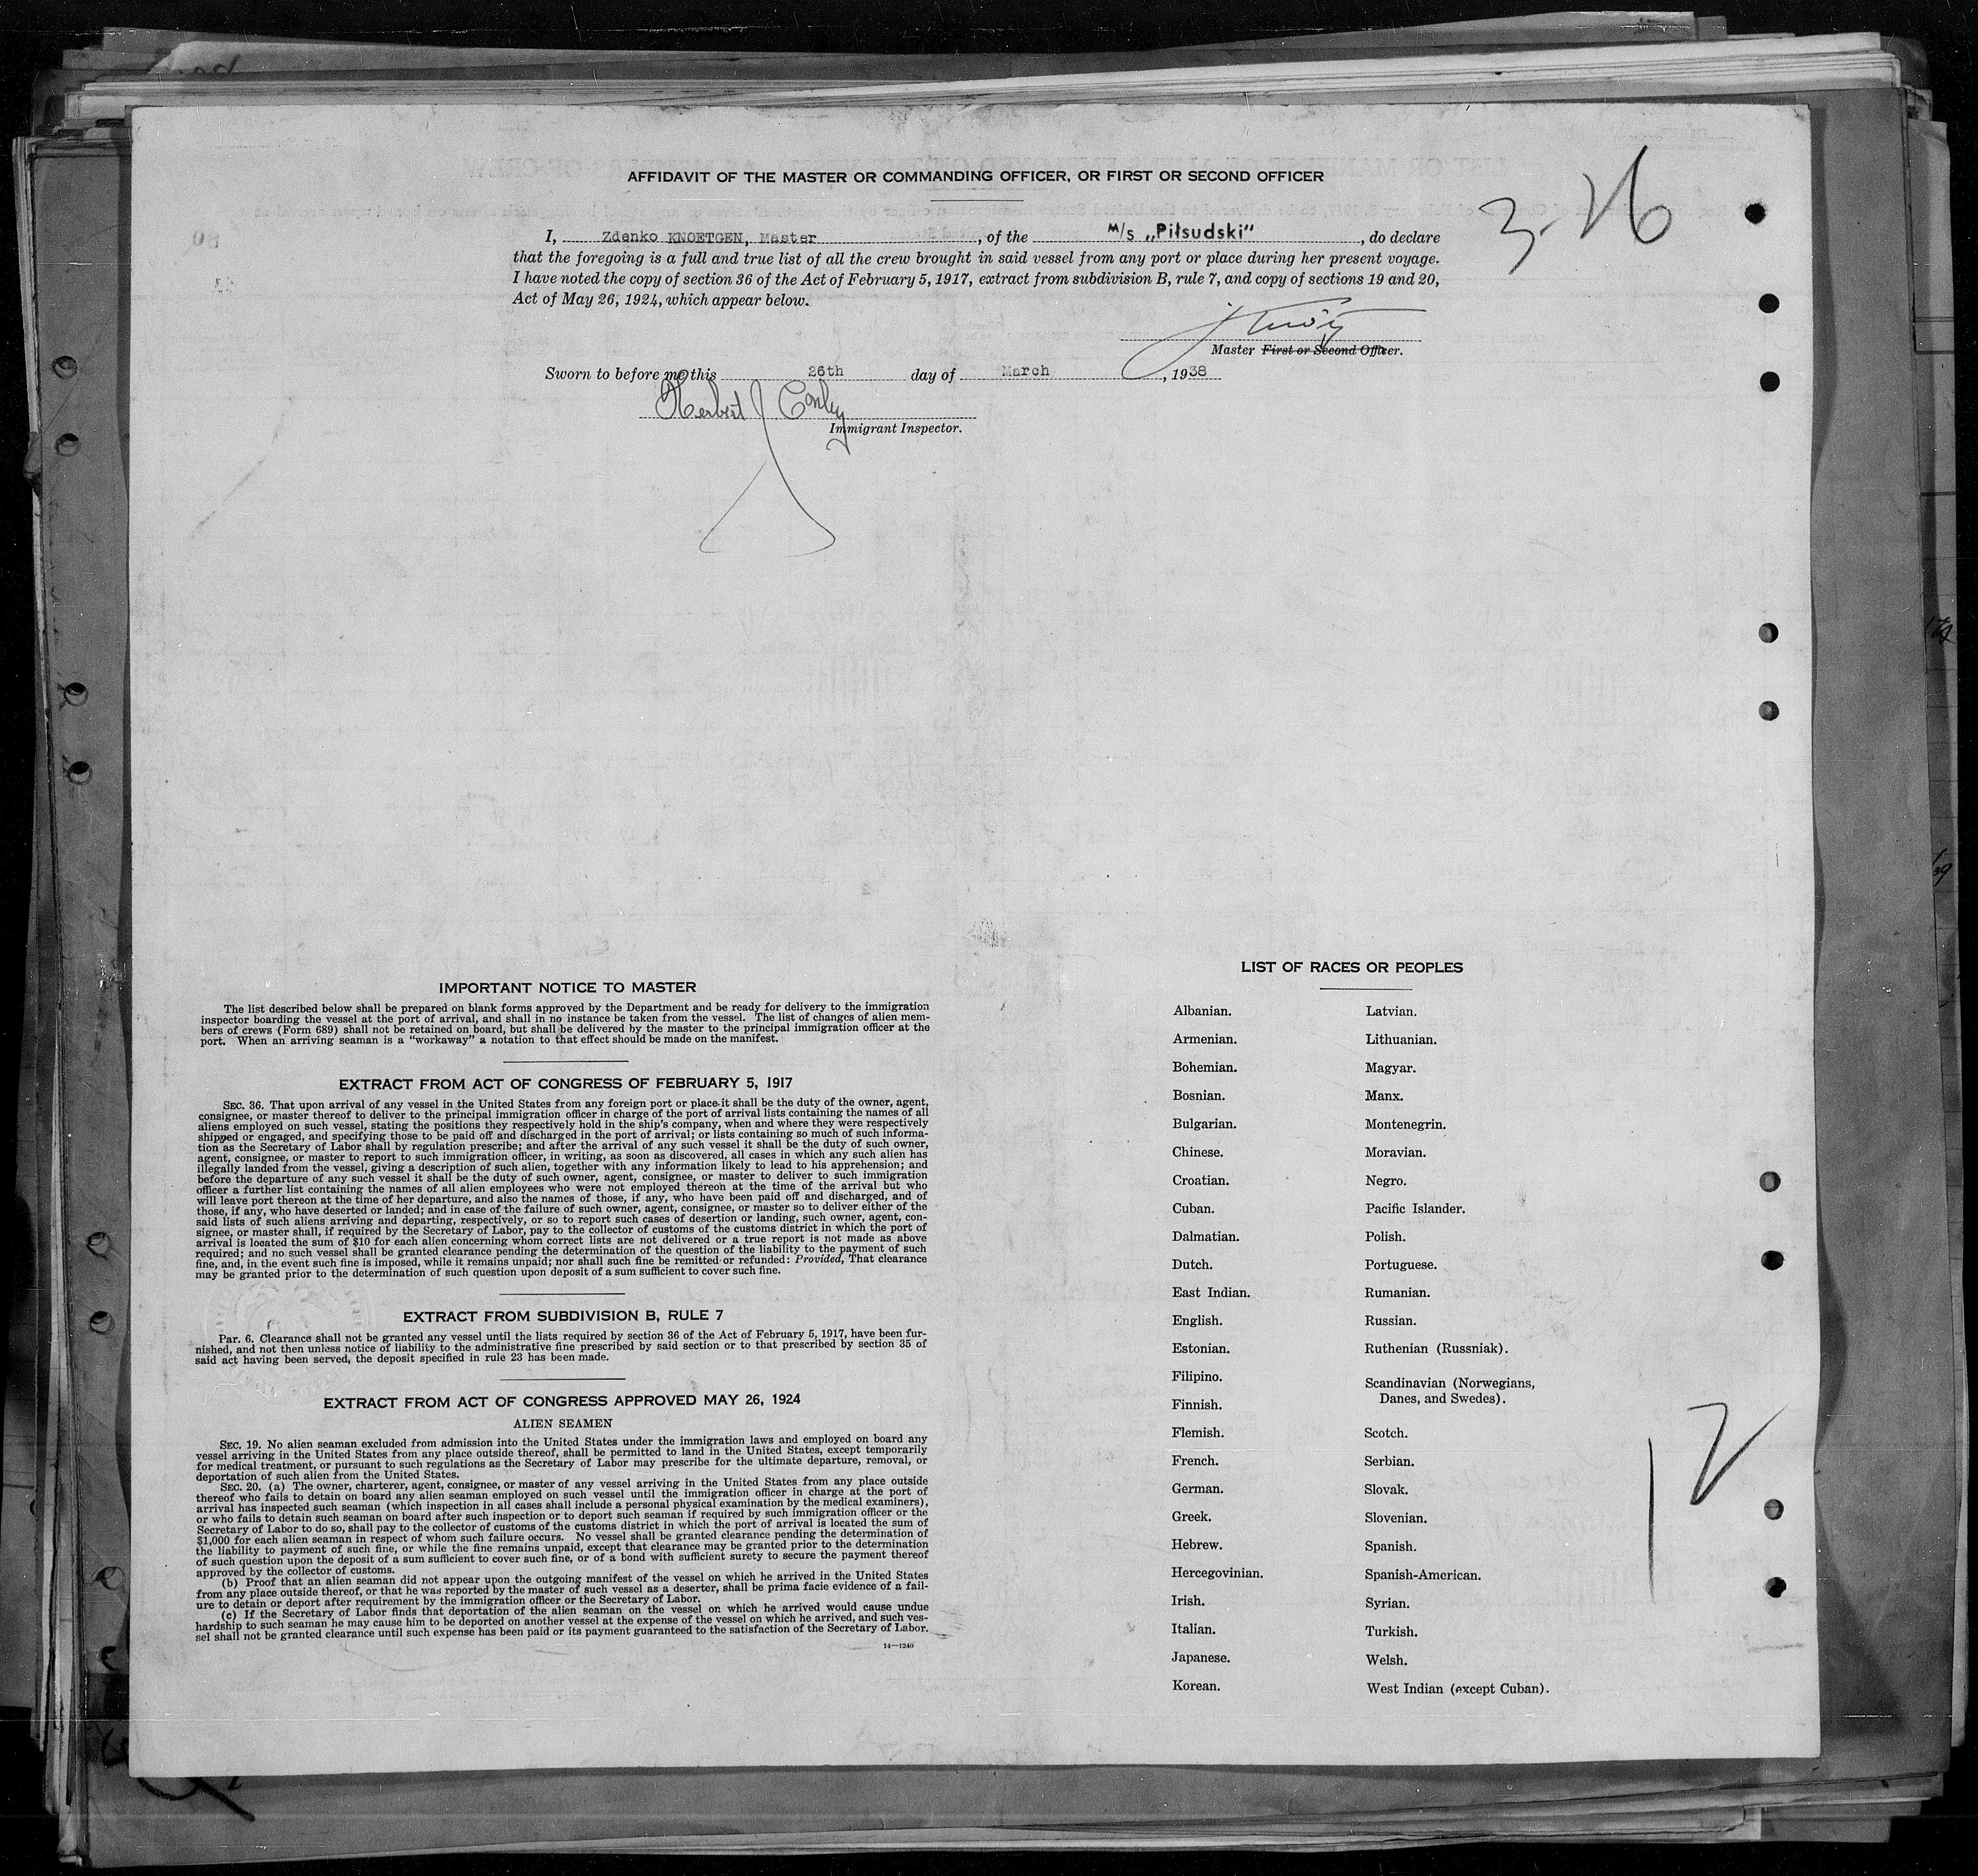 AFFIDAVIT OF THE MASTER OR COMMANDING OFFICER, OR FIRST OR SECOND OFFICER
3-26
I, Zdenko KNOETGEN, Master, of the M/S „Piłsudski", do declare
that the foregoing is a full and true list of all the crew brought in said vessel from any port or place during her present voyage.
I have noted the copy of section 36 of the Act of February 5, 1917, extract from subdivision B, rule 7, and copy of sections 19 and 20,
Act of May 26, 1924, which appear below.
Master First or Second Officer.
Sworn to before me this 26th day of March, 1938
Herbert J Conley
Immigrant Inspector.
IMPORTANT NOTICE TO MASTER
The list described below shall be prepared on blank forms approved by the Department and be ready for delivery to the immigration
inspector boarding the vessel at the port of arrival, and shall in no instance be taken from the vessel. The list of changes of alien mem-
bers of crews (Form 689) shall not be retained on board, but shall be delivered by the master to the principal immigration officer at the
port. When an arriving seaman is a "workaway" a notation to that effect should be made on the manifest.
EXTRACT FROM ACT OF CONGRESS OF FEBRUARY 5, 1917
SEC. 36. That upon arrival of any vessel in the United States from any foreign port or place it shall be the duty of the owner, agent,
consignee, or master thereof to deliver to the principal immigration officer in charge of the port of arrival lists containing the names of all
aliens employed on such vessel, stating the positions they respectively hold in the ship's company, when and where they were respectively
shipped or engaged, and specifying those to be paid off and discharged in the port of arrival; or lists containing so much of such informa-
tion as the Secretary of Labor shall by regulation prescribe; and after the arrival of any such vessel it shall be the duty of such owner,
agent, consignee, or master to report to such immigration officer, in writing, as soon as discovered, all cases in which any such alien has
illegally landed from the vessel, giving a description of such alien, together with any information likely to lead to his apprehension; and
before the departure of any such vessel it shall be the duty of such owner, agent, consignee, or master to deliver to such immigration
officer a further list containing the names of all alien employees who were not employed thereon at the time of the arrival but who
will leave port thereon at the time of her departure, and also the names of those, if any, who have been paid off and discharged, and of
those, if any, who have deserted or landed; and in case of the failure of such owner, agent, consignee, or master so to deliver either of the
said lists of such aliens arriving and departing, respectively, or so to report such cases of desertion or landing, such owner, agent, con-
signee, or master shall, if required by the Secretary of Labor, pay to the collector of customs of the customs district in which the port of
arrival is located the sum of $10 for each alien concerning whom correct lists are not delivered or a true report is not made as above
required; and no such vessel shall be granted clearance pending the determination of the question of the liability to the payment of such
fine, and, in the event such fine is imposed, while it remains unpaid; nor shall such fine be remitted or refunded: Provided, That clearance
may be granted prior to the determination of such question upon deposit of a sum sufficient to cover such fine.
EXTRACT FROM SUBDIVISION B, RULE 7
Par. 6. Clearance shall not be granted any vessel until the lists required by section 36 of the Act of February 5, 1917, have been fur-
nished, and not then unless notice of liability to the administrative fine prescribed by said section or to that prescribed by section 35 of
said act having been served, the deposit specified in rule 23 has been made.
EXTRACT FROM ACT OF CONGRESS APPROVED MAY 26, 1924
ALIEN SEAMEN
SEC. 19. No alien seaman excluded from admission into the United States under the immigration laws and employed on board any
vessel arriving in the United States from any place outside thereof, shall be permitted to land in the United States, except temporarily
for medical treatment, or pursuant to such regulations as the Secretary of Labor may prescribe for the ultimate departure, removal, or
deportation of such alien from the United States.
SEC. 20. (a) The owner, charterer, agent, consignee, or master of any vessel arriving in the United States from any place outside
thereof who fails to detain on board any alien seaman employed on such vessel until the immigration officer in charge at the port of
arrival has inspected such seaman (which inspection in all cases shall include a personal physical examination by the medical examiners),
or who fails to detain such seaman on board after such inspection or to deport such seaman if required by such immigration officer or the
Secretary of Labor to do so, shall pay to the collector of customs of the customs district in which the port of arrival is located the sum of
$1,000 for each alien seaman in respect of whom such failure occurs. No vessel shall be granted clearance pending the determination of
the liability to payment of such fine, or while the fine remains unpaid, except that clearance may be granted prior to the determination
of such question upon the deposit of a sum sufficient to cover such fine, or of a bond with sufficient surety to secure the payment thereof
approved by the collector of customs.
(b) Proof that an alien seaman did not appear upon the outgoing manifest of the vessel on which he arrived in the United States
from any place outside thereof, or that he was reported by the master of such vessel as a deserter, shall be prima facie evidence of a fail-
ure to detain or deport after requirement by the immigration officer or the Secretary of Labor.
(c) If the Secretary of Labor finds that deportation of the alien seaman on the vessel on which he arrived would cause undue
hardship to such seaman he may cause him to be deported on another vessel at the expense of the vessel on which he arrived, and such ves-
sel shall not be granted clearance until such expense has been paid or its payment guaranteed to the satisfaction of the Secretary of Labor.
14—1240
LIST OF RACES OR PEOPLES
Albanian.
Armenian.
Bohemian.
Bosnian.
Bulgarian.
Chinese.
Croatian.
Cuban.
Dalmatian.
Dutch.
East Indian.
English.
Estonian.
Filipino.
Finnish.
Flemish.
French.
German.
Greek.
Hebrew.
Hercegovinian.
Irish.
Italian.
Japanese.
Korean.
Latvian.
Lithuanian.
Magyar.
Manx.
Montenegrin.
Moravian.
Negro.
Pacific Islander.
Polish.
Portuguese.
Rumanian.
Russian.
Ruthenian (Russniak).
Scandinavian (Norwegians,
Danes, and Swedes).
Scotch.
Serbian.
Slovak.
Slovenian.
Spanish.
Spanish-American.
Syrian.
Turkish.
Welsh.
West Indian (except Cuban).
12